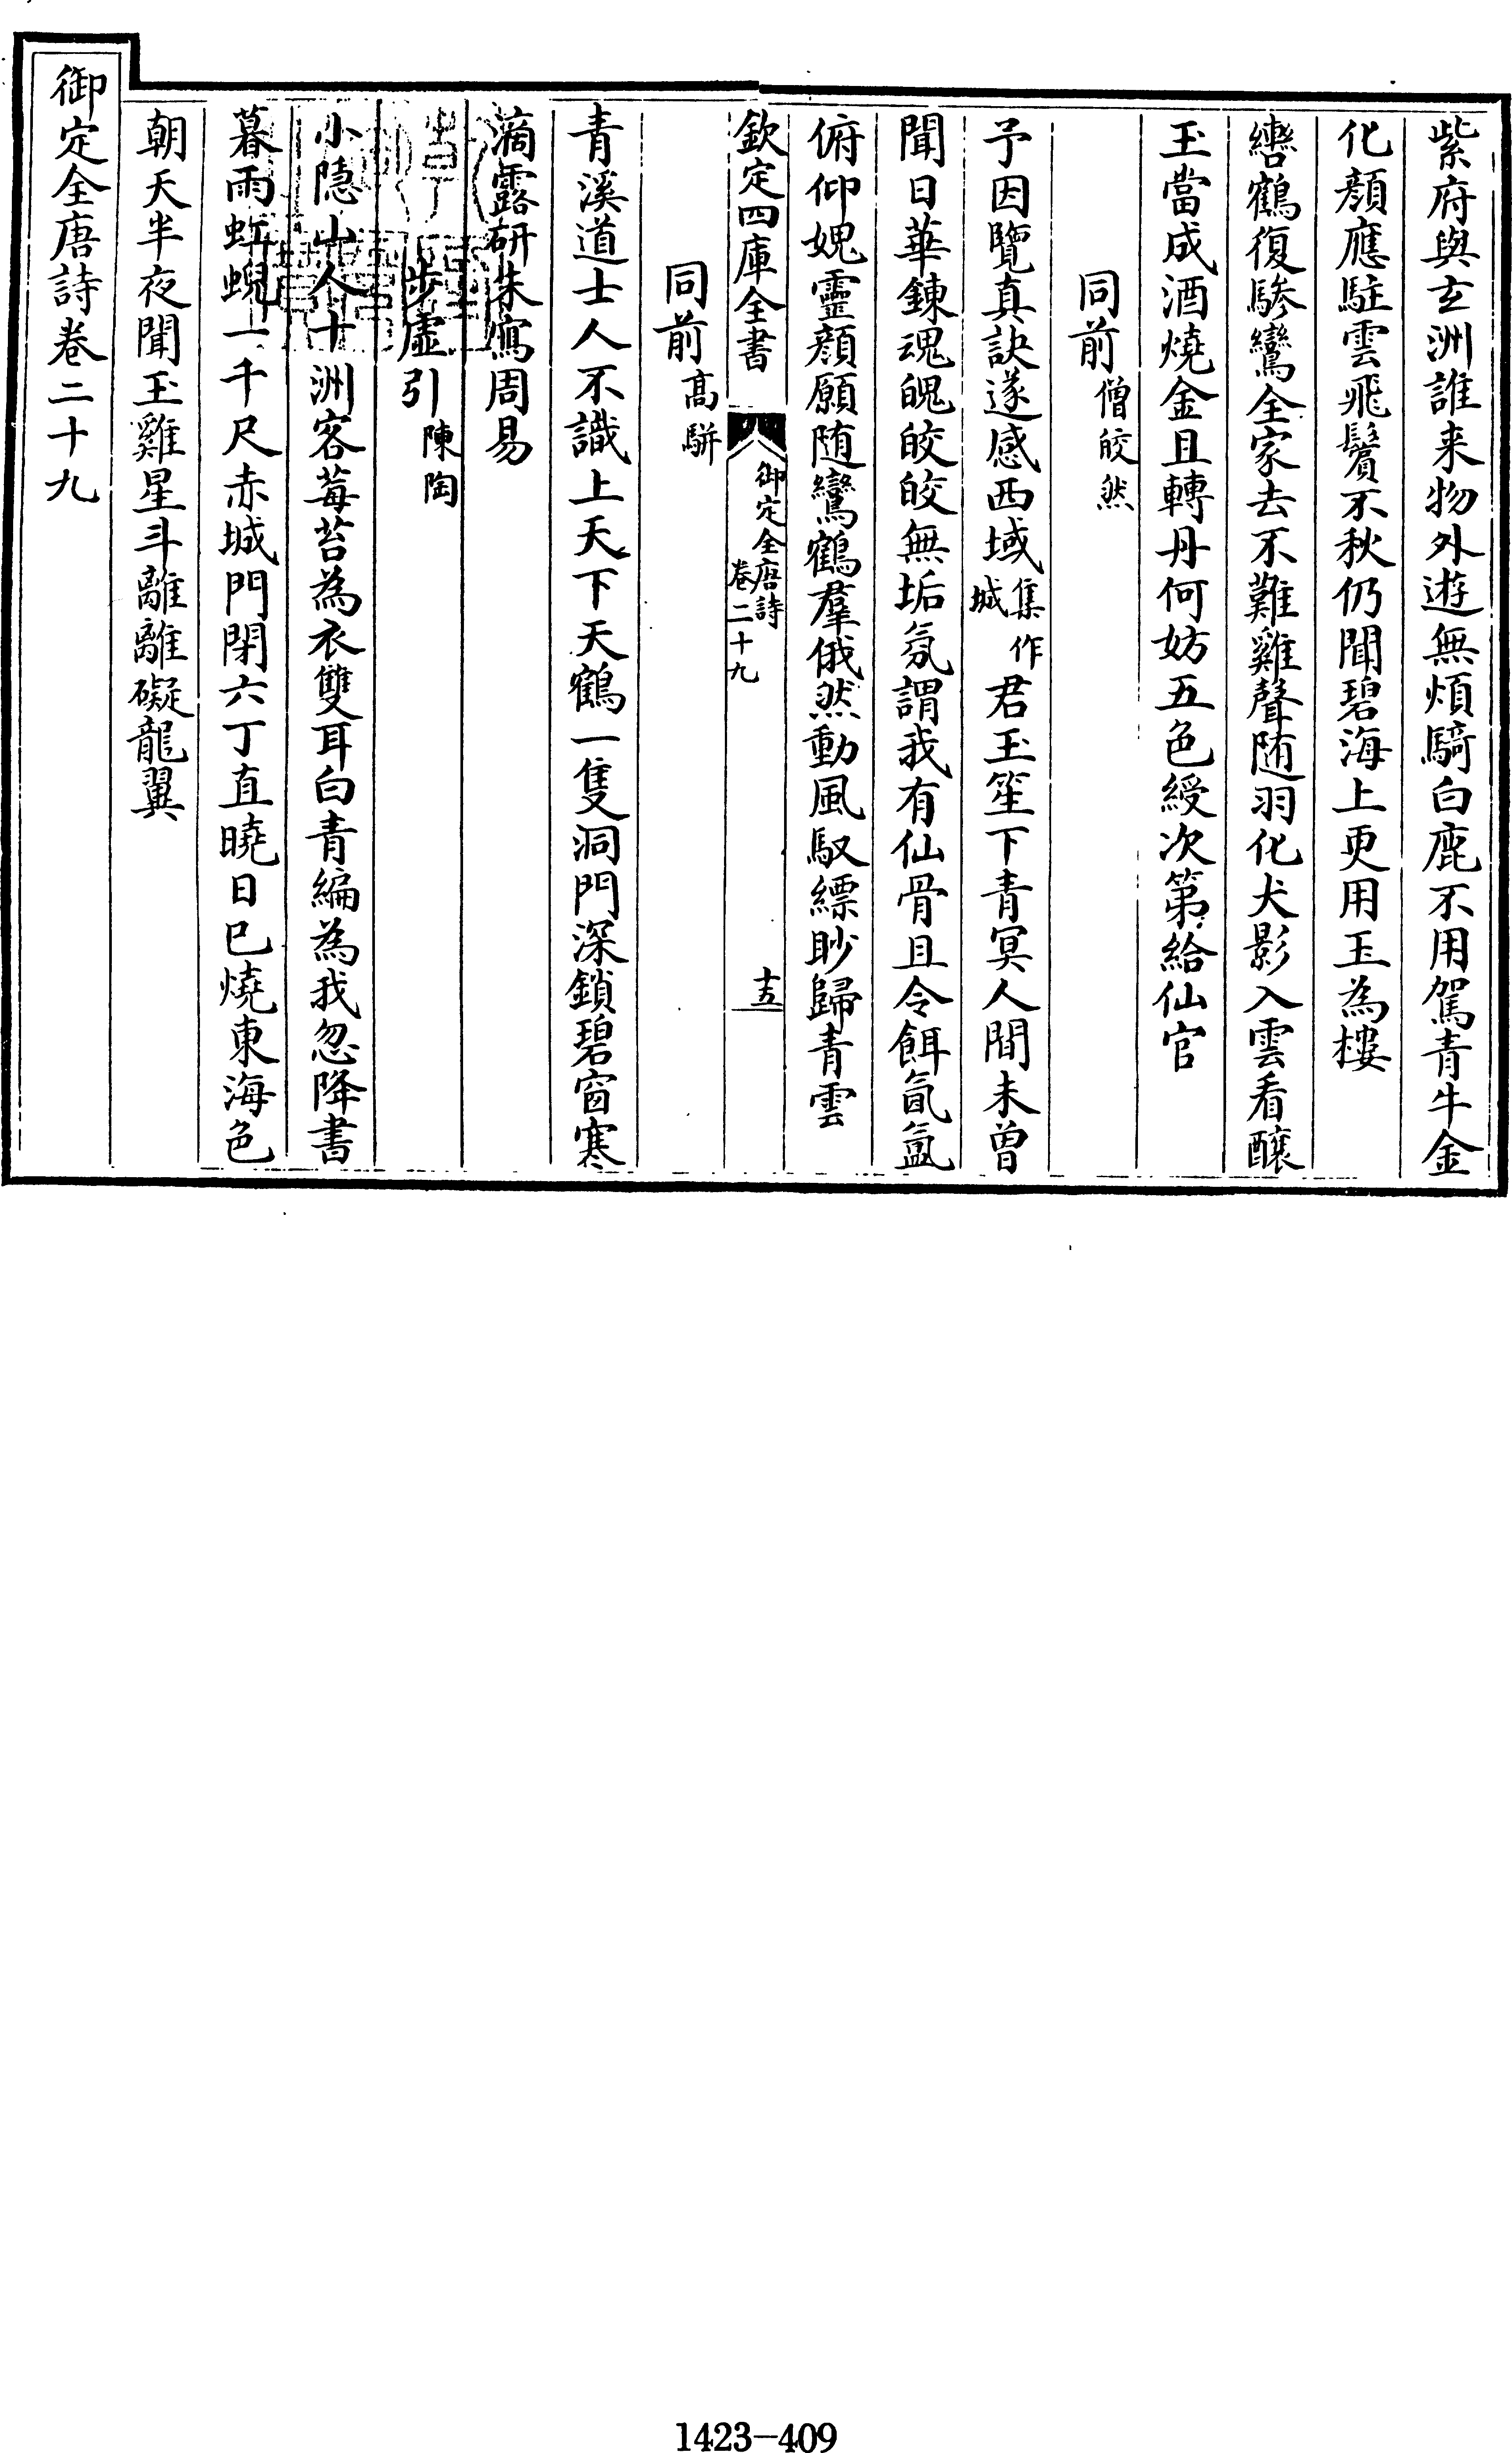 紫府與玄洲誰来物外遊無煩騎白鹿不用駕青牛金
化顔應駐雲飛鬢不秋仍聞碧海上更用玉為樓
轡鶴復驂鸞全家去不難雞聲随羽化犬影入雲看釀
玉當成酒燒金且轉丹何妨五色綬次第給仙官
同前僧皎然
予因覽真訣遂感西域集作城君玉笙下青冥人間未曾
聞日華鍊魂魄皎皎無垢氛謂我有仙骨且令餌氤氳
俯仰媿靈顔願随鸞鶴羣俄然動風馭縹眇歸青雲
欽定四庫全書
御定全唐詩
卷二十九
十五
同前高駢
青溪道士人不識上天下天鶴一隻洞門深鎖碧窗寒
滴露研朱寫周易
步虛引陳陶
小隱山人十洲客莓苔為衣雙耳白青編為我忽降書
暮雨虹蜺一千尺赤城門閉六丁直曉日已燒東海色
朝天半夜聞玉雞星斗離離礙龍翼
御定全唐詩卷二十九
1423-409